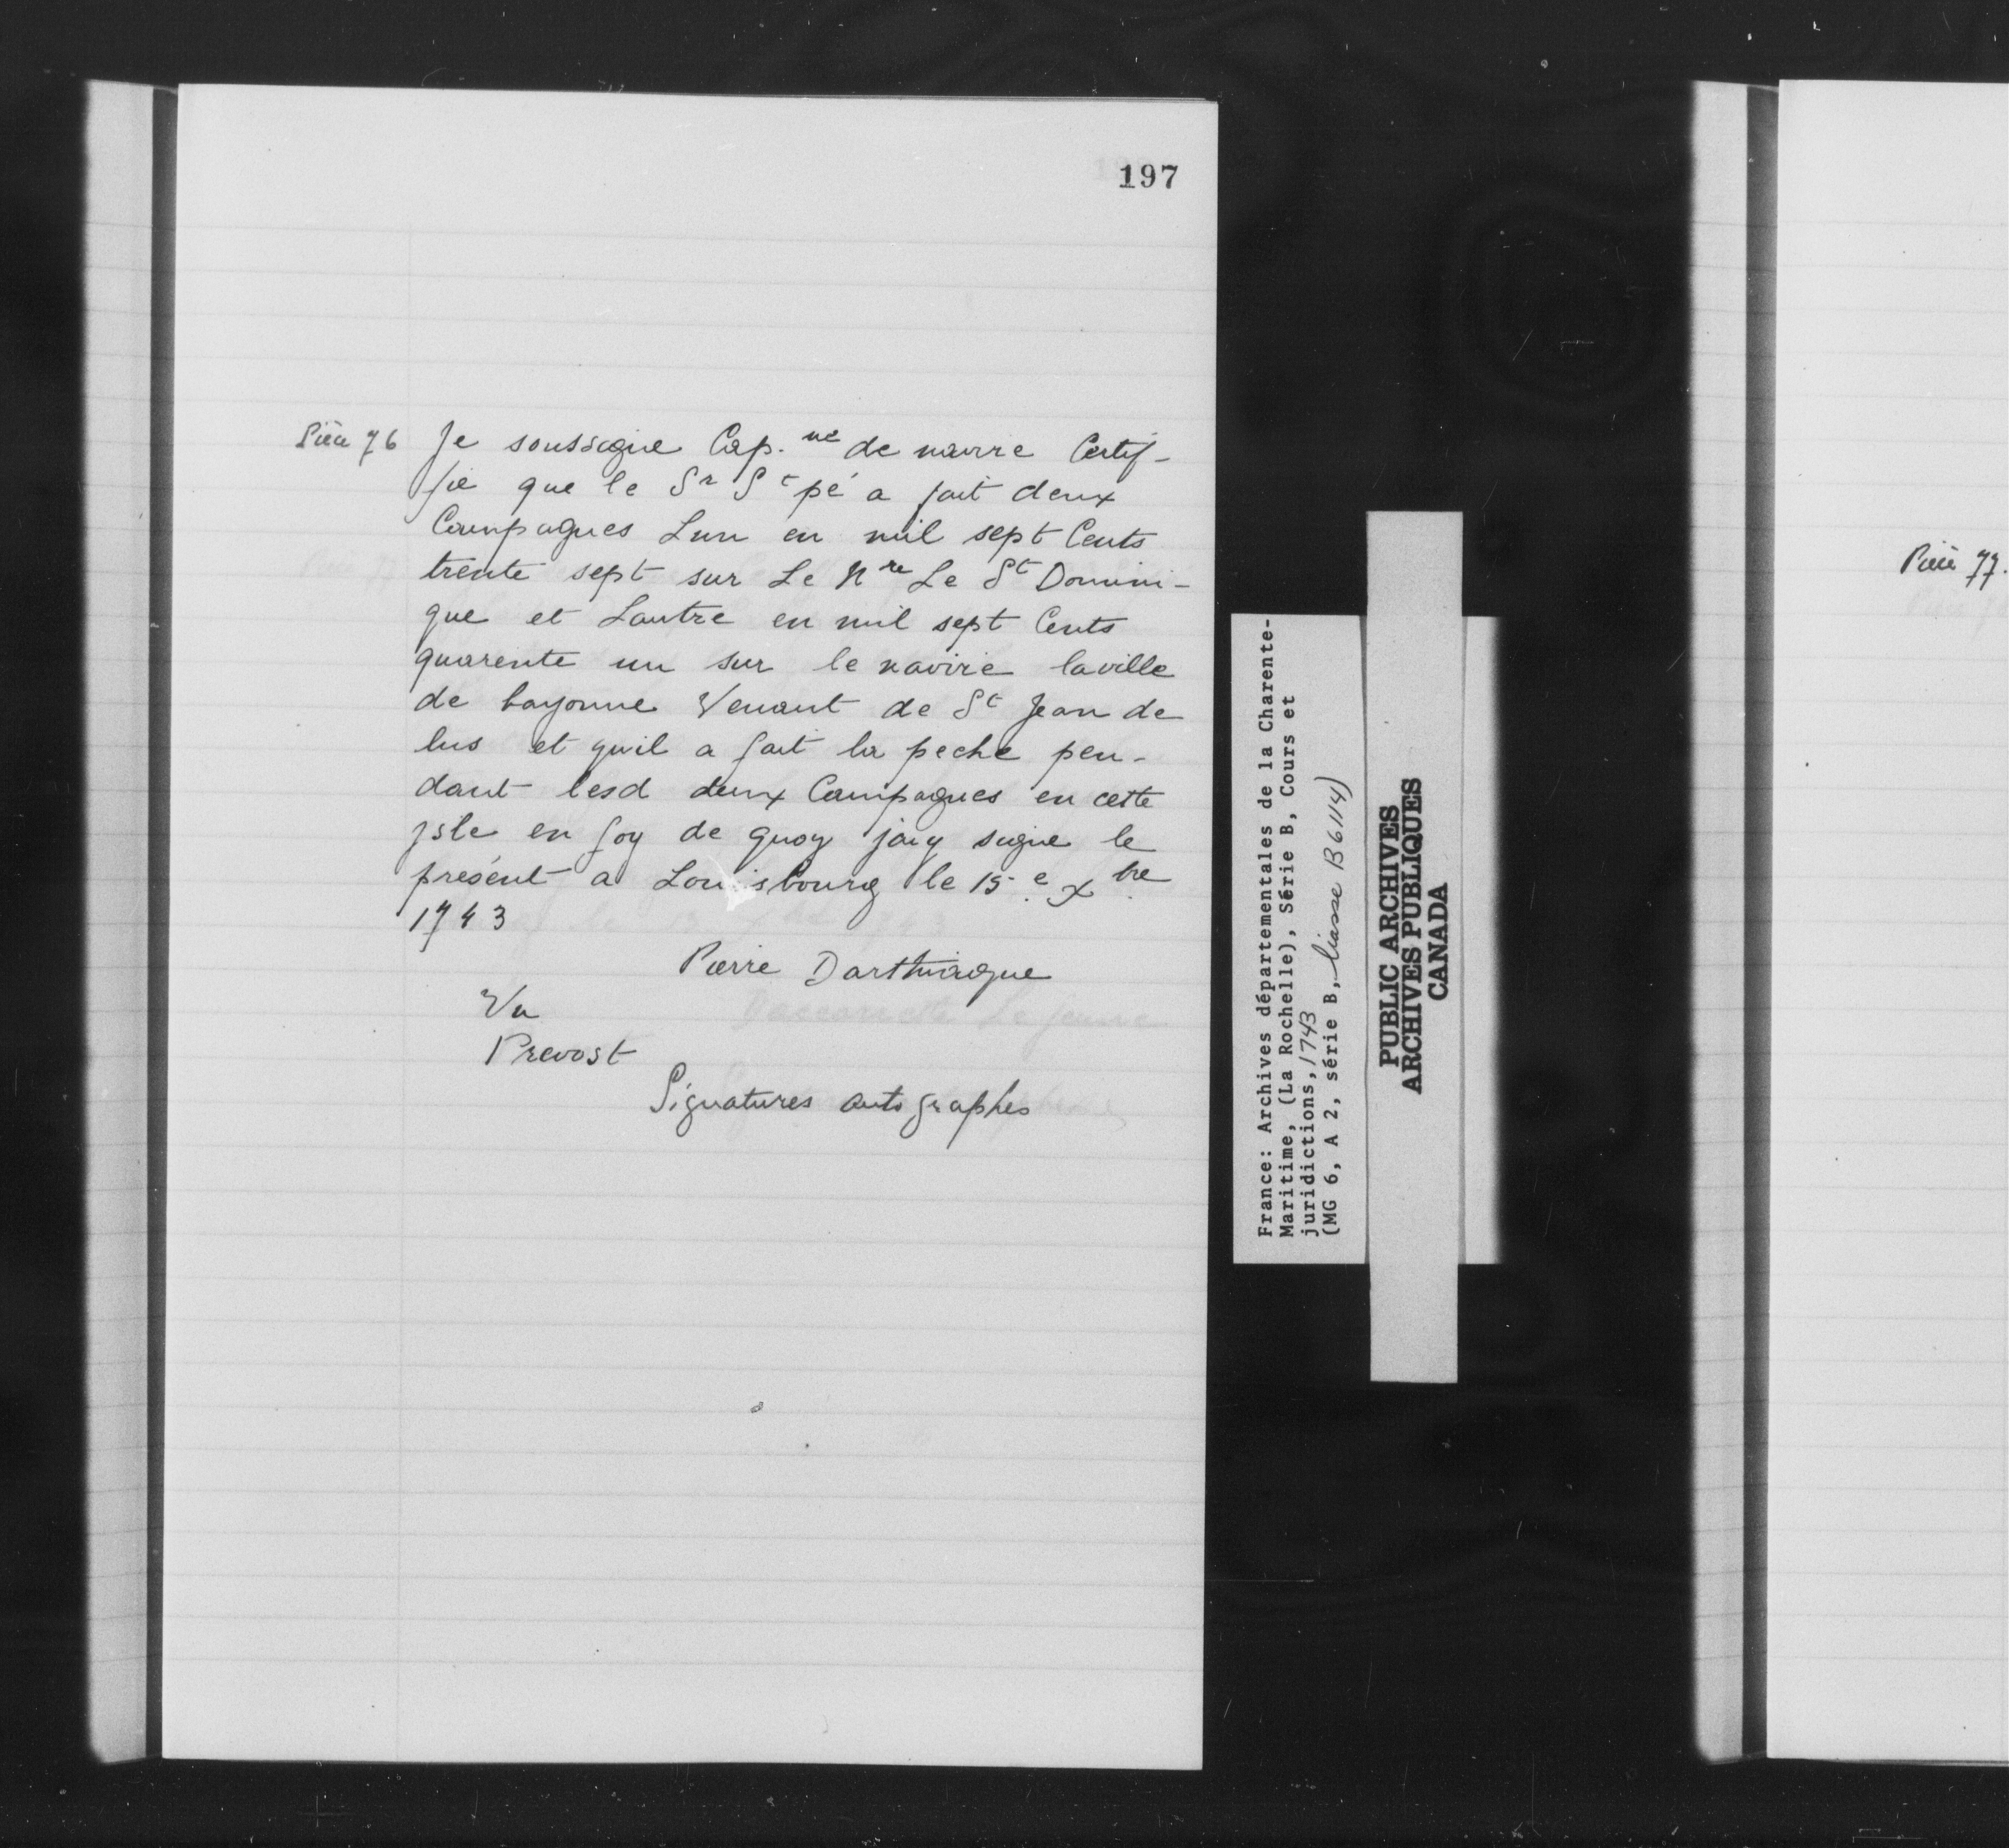 197
Pièce 76
Je soussigne Cap.ne de navire Certif-
fie que le Sr St pé a fait deux
Campagnes Lun en mil sept Cents
trente sept sur Le Nre Le St Domini-
que et Lautre en mil sept Cents
quarente un sur le navire laville
de bayonne Venant de St Jean de
lus et quil a fait la peche pen-
dant lesd deux Campagnes en cette
jsle en foy de quoy jaiy signe le
présent a Louisbourg le 15e xbre
1743
Pierre Darthiague
Vu
Prevost
Signatures autographes
France: Archives départementales de la Charente-
Maritime, (La Rochelle), Série B, Cours et
juridictions, 1743
(MG 6, A 2, série B, liasse B6114)
PUBLIC ARCHIVES
ARCHIVES PUBLIQUES
CANADA
Pièce 77.